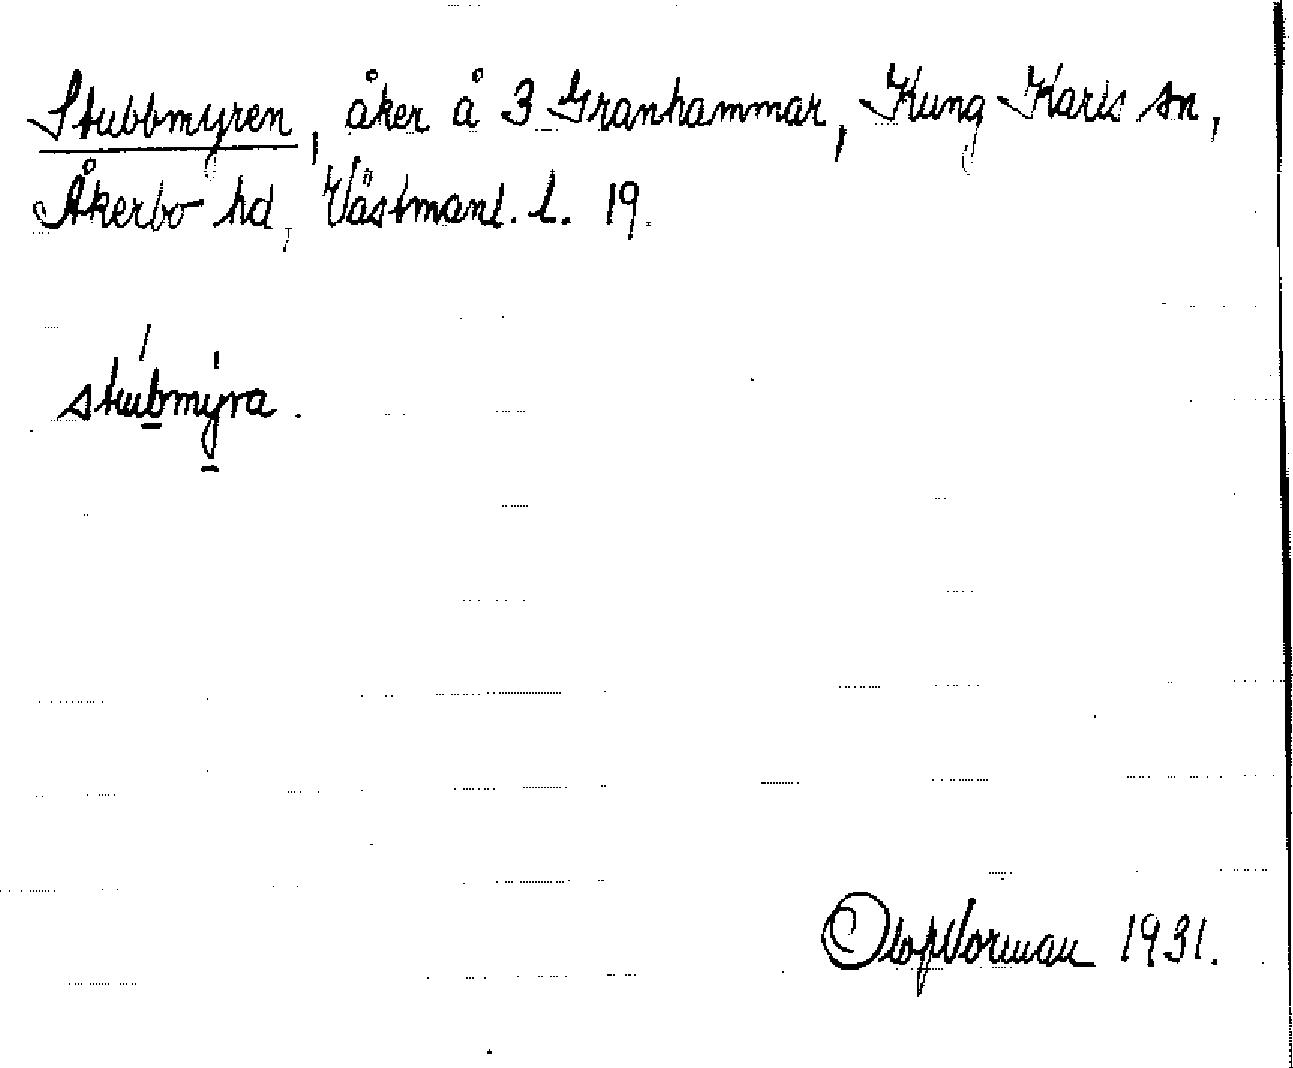 Stubbmyren, åker å 3 Granhammar, Kung Karls sn,
Åkerbo hd, Västmanl. l. 19.
stubmyra.
Olof Norman 1931.